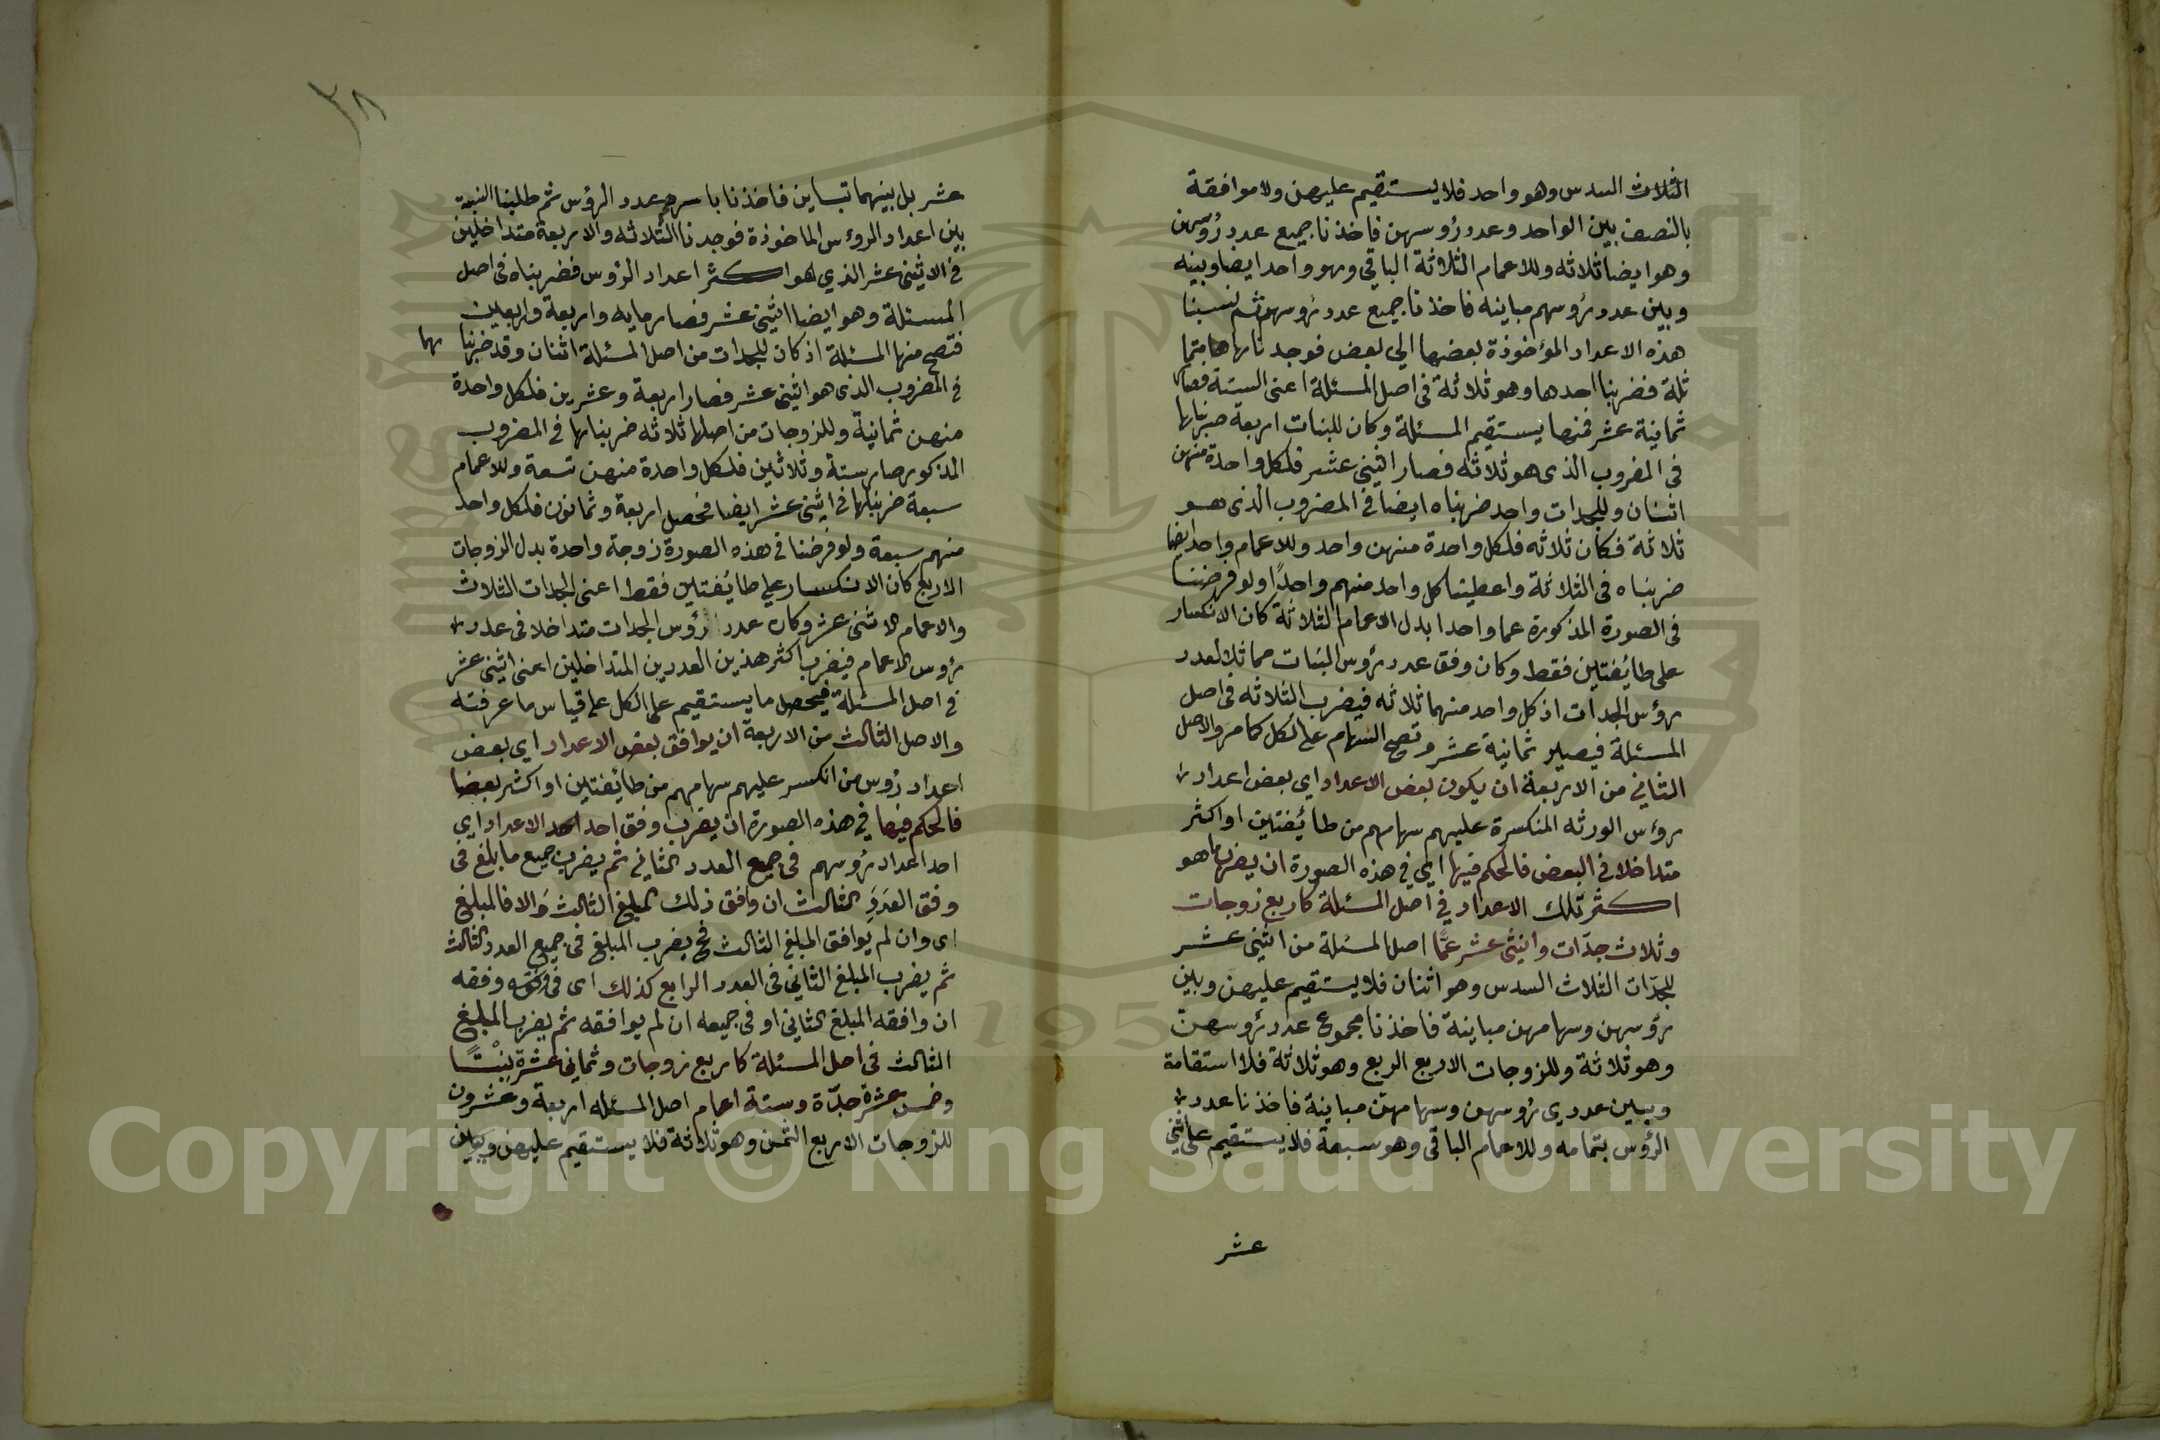 الثلاث السدس وهو واحد فلا يستقيم عليهن ولا موافقة
بالنصف بين الواحد وعدد رؤسهن فاخذنا جميع عدد رؤسهن
وهو ايضا ثلاثه وللاعمام الثلاثة الباقي وهو واحد ايضا وبينه
وبين عدد رؤسهم مباينه فاخذنا جميع عدد رؤسهم ثم نسبنا
هذه الاعداد المؤخوذة بعضها الى بعض فوجدناها متما
ثلة فضربنا احدها وهو ثلاثة فى اصل المسئلة اعنى الستة فصار
ثمانية عشر فمنها يستقيم المسئلة وكان للبنات اربعة ضربناها
فى المضروب الذى هو ثلاثه فصار اثنى عشر فلكل واحدة منهن
اثنان وللجدات واحد ضربناه ايضا فى المضروب الذى هو
ثلاثة فكان ثلاثه فلكل واحدة منهن واحد وللاعمام واحد ايضا
ضربناه فى الثلاثة واعطينا كل واحد منهم واحدًا ولو فرضنا
فى الصورة المذكورة عما واحدا بدل الاعمام الثلاثة كان الانكسار
على طايُفتين فقط وكان وفق عدد رؤس البنات مماثلا لعدد
رؤس الجدات اذ كل واحد منهما ثلاثه فيضرب الثلاثه فى اصل
المسئلة فيصير ثمانية عشر وتصح السهام على الكل كما مر والاصل
الثانى من الاربعة ان يكون بعض الاعداد اى بعض اعداد
رؤس الورثه المنكسرة عليهم سهامهم من طائفتين او اكثر
متداخلا فى البعض فالحكم فيها اى فى هذه الصورة ان يضرب ما هو
اكثر تلك الاعداد فى اصل المسئلة كاربع زوجات
وثلاث جدّات واثنى عشر عمًّا اصل المسئلة من اثنى عشر
للجدّات الثلاث السدس وهو اثنان فلا يستقيم عليهن وبين
رؤسهن وسهامهن مباينة فاخذنا مجموع عدد رؤسهن
وهو ثلاثة وللزوجات الاربع الربع وهو ثلاثة فلا استقامة
وبين عددى رؤسهن وسهامهن مباينة فاخذنا عدد
الرؤس بتمامه وللاعمام الباقى وهو سبعة فلا يستقيم على اثنى
عشر
٣٨
عشر بل بينهما تباين فاخذنا باسرهم عدد الرؤس ثم طلبنا النسبة
بين اعداد الرؤس الماخوذة فوجدنا الثلاثه والاربعة متداخلين
فى الاثنى عشر الذي هو اكثر اعداد الرؤس فضربناه فى اصل
المسئلة وهو ايضا اثنى عشر فصار مايه واربعة واربعين
فتصح منها المسئلة اذ كان للجدات من اصل المسئلة اثنان وقد ضربنا هما
فى المضروب الذى هو اثنى عشر فصار اربعة وعشرين فلكل واحدة
منهن ثمانية وللزوجات من اصلها ثلاثه ضربناها فى المضروب
المذكور صار ستة وثلاثين فلكل واحدة منهن تسعة وللاعمام
سبعة ضربناها فى اثنى عشر ايضا فحصل اربعة وثمانون فلكل واحد
منهم سبعة ولو فرضنا فى هذه الصورة زوجة واحدة بدل الزوجات
الاربع كان الانكسار على طايُفتين فقط اعنى الجدات الثلاث
والاعمام الاثنى عشر وكان عدد رؤس الجدات متداخلا فى عدد
رؤس الاعمام فيضرب اكثر هذين العددين المتداخلين اعنى اثنى عشر
فى اصل المسئلة فيحصل ما يستقيم على الكل على قياس ما عرفته
والاصل الثالث من الاربعة ان يوافق بعض الاعداد اى بعض
اعداد رؤس من انكسر عليهم سهامهم من طايُفتين او اكثر بعضا
فالحكم فيها فى هذه الصورة ان يضرب وفق احد الاعداد اى
احد اعداد رؤسهم فى جميع العدد الثانى ثم يضرب جميع ما بلغ فى
وفق العدد الثالث ان وافق ذلك المبلغ الثالث والا فالمبلغ
اى وان لم يوافق المبلغ الثالث فح يضرب المبلغ فى جميع العدد الثالث
ثم يضرب المبلغ الثانى فى العدد الرابع كذلك اى فى وفقه
ان وافقه المبلغ الثانى او فى جميعه ان لم يوافقه ثم يضرب المبلغ
الثالث فى اصل المسئلة كاربع زوجات وثمانى عشرة بنتًا
وخمس عشرة جدّة وستة اعمام اصل المسئله اربعة وعشرون
للزوجات الاربع الثمن وهو ثلاثة فلا يستقيم عليهن وبين
Copyright © King Saud University
1957